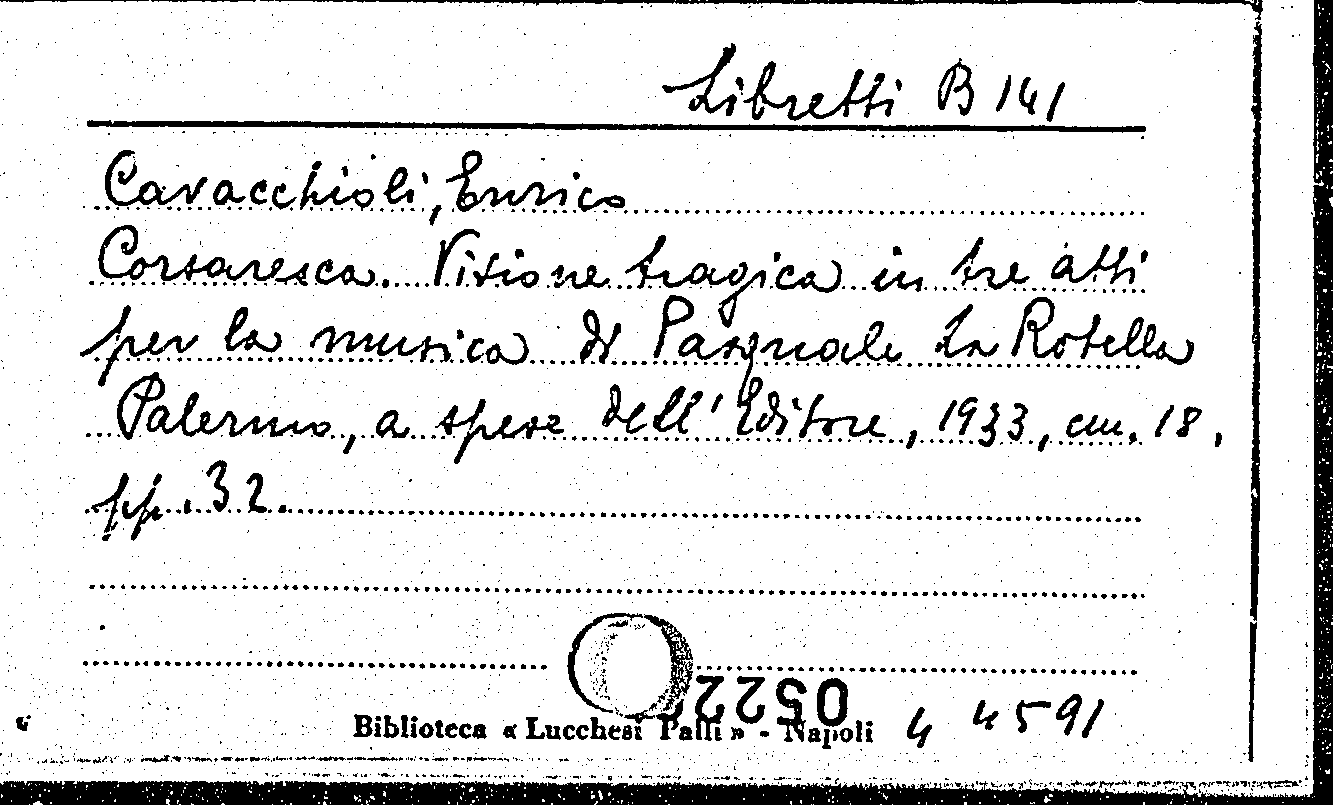 Libretti B 141
Cavacchioli, Enrico
Corsaresca. Visione tragica in tre atti
per la musica di Pasquale La Rotella
Palermo, a spese dell'Editore, 1933, cm. 18,
pp. 32.
Biblioteca « Lucchesi Palli » - Napoli 4 4591